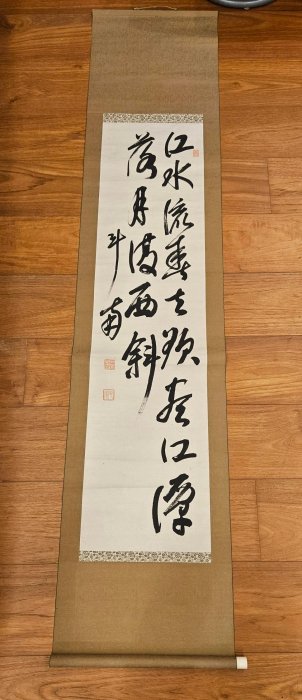 江水流春去欲尽江潭
落月復西斜
斗南